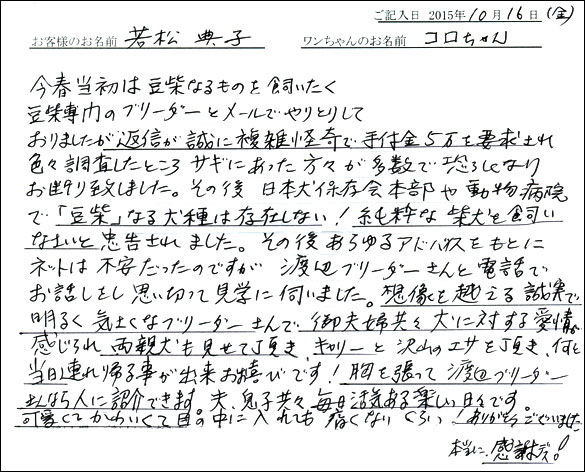 ご記入日 2015年10月16日(金)
お客様のお名前 若松 典子 ワンちゃんのお名前 コロちゃん
今春当初は豆柴なるものを飼いたく
豆柴専門のブリーダーとメールでやりとりして
おりましたが返信が誠に複雑怪奇で手付金5万を要求され
色々調査したところサギにあった方々が多数で恐ろしくなり
お断り致しました。その後 日本犬保存会本部や動物病院
で「豆柴」なる犬種は存在しない!純粋な柴犬を飼い
なさいと忠告されました。その後あらゆるアドバイスをもとに
ネットは不安だったのですが 渡辺ブリーダーさんと電話で
お話しをし思い切って見学に伺いました。想像を越える誠実で
明るく気さくなブリーダーさんで御夫婦共々犬に対する愛情を
感じられ両親犬も見せて頂き、キャリーと沢山のエサを頂き、何と
当日連れ帰る事が出来お喜びです!胸を張って渡辺ブリーダー
さんなら人に紹介できます。夫、息子共々毎日活気ある楽しい日々です。
可愛くてかわいくて目の中に入れても痛くないくらい!ありがとうございました
本当に感謝デス!